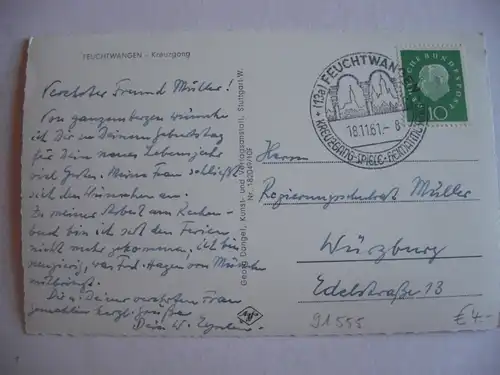 FEUCHTWANGEN – Kreuzgang
Verehrter Freund Müller!
Von ganzem Herzen wünsche
ich Dir zu Deinem Geburtstag
für Dein neues Lebensjahr
viel Gutes. Meine Frau schließt
sich den Wünschen an.
Zu meiner Arbeit am
bin ich seit den Ferien
nicht mehr gekommen. Ich bin
neugierig, was Frd. Hagen von München
mitbringt.
Dir u. Deiner verehrten Frau
Gemahlin herzl. Grüße
Dein W.
Georg Danget, Kunst- und Verlagsanstalt, Stuttgart-W.
Nr. 182049/1GF
(13a) FEUCHTWANGEN
18.11.61.– 8
KREUZGANG-SPIELE
DEUTSCHE BUNDESPOST
10
Herrn
Regierungsschulrat Müller
Würzburg
Edelstraße 13
91555
€ 4-